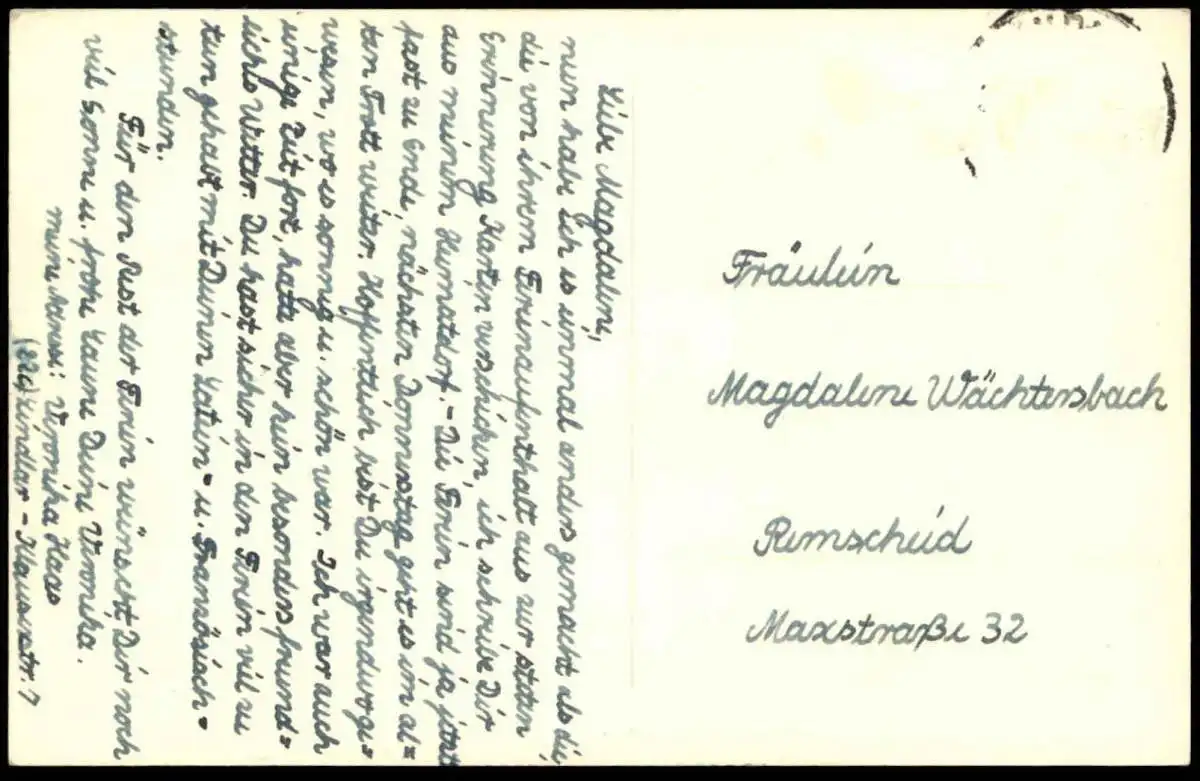 Liebe Magdalene,
nun habe ich es einmal anders gemacht als die
die von ihrem Ferienaufenthalt aus zur steten
Erinnerung Karten verschicken, ich schreibe Dir
aus meinem Heimatdorf. - Die Ferien sind ja jetzt
fast zu Ende, nächsten Donnerstag geht es im al=
ten Trott weiter. Hoffentlich bist Du irgendwo ge=
wesen, wo es sonnig u. schön war. Ich war auch
einige Zeit fort, hatte aber kein besonders freund=
liches Wetter. Du hast sicher in den Ferien viel zu
tun gehabt mit Deinen Latein= u. Französisch=
stunden.
Für den Rest der Ferien wünscht Dir noch
viel Sonne u. frohe Laune Deine Veronika.
meine Adresse: Veronika Haas
Lindlar - Klausestr. 7
Fräulein
Magdalene Wächtersbach
Remscheid
Maxstraße 32